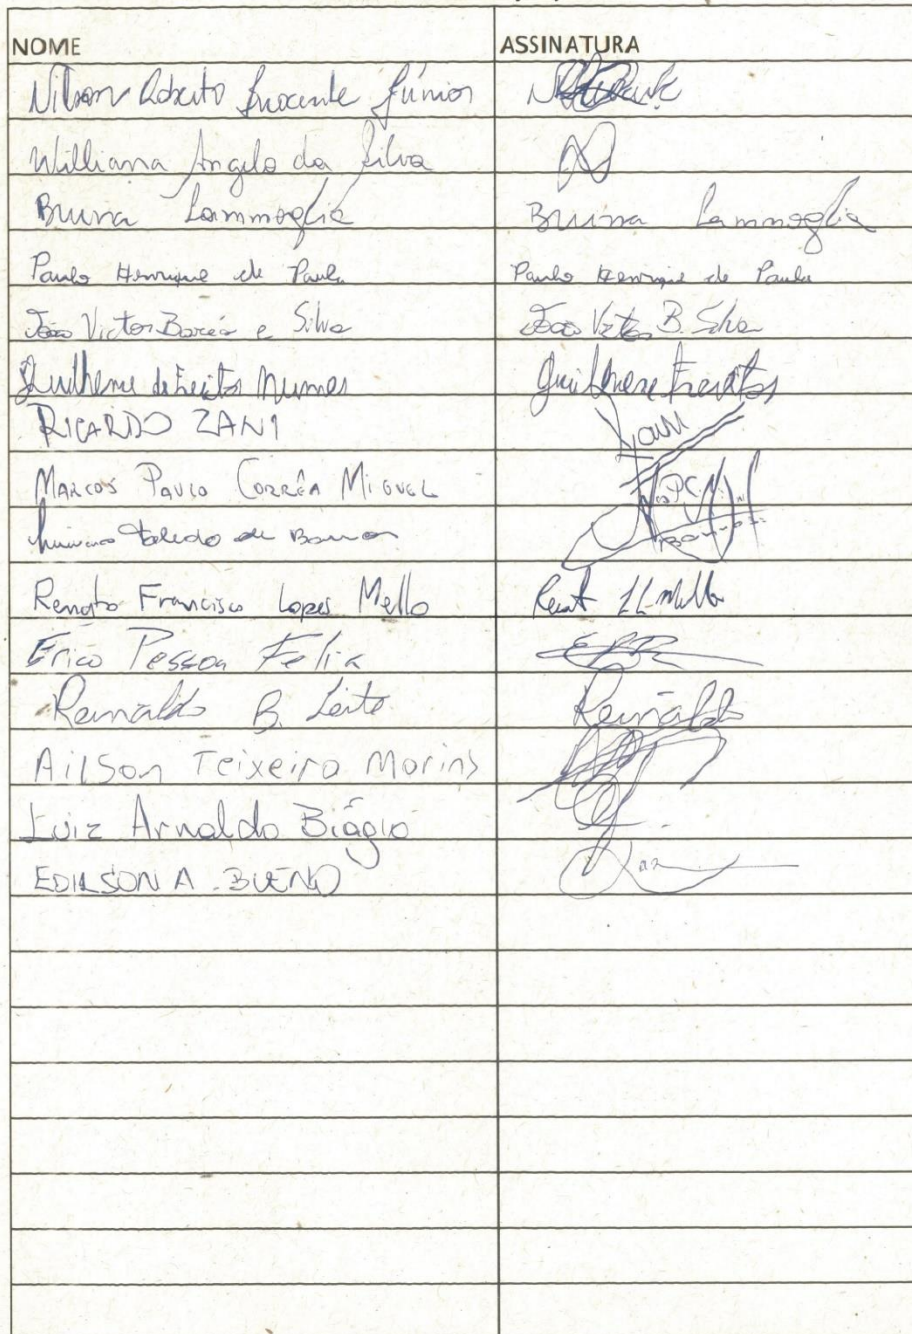 NOME ASSINATURA
Nilson Roberto Inocente Júnior
Williana Angelo da Silva
Bruna Lammoglia Bruna Lammoglia
Paulo Henrique de Paula Paulo Henrique de Paula
João Victor Barêa e Silva João Victor B. Silva
Guilherme de Freitas Nunes Guilherme Freitas
RICARDO ZANI Zani
MARCOS PAULO CORRÊA MIGUEL
Toledo de Barros
Renato Francisco Lopes Mello
Erico Pessoa Felix
Reinaldo B. Leite Reinaldo
Ailson Teixeira Morins
Luiz Arnaldo Biágio
EDILSON A. BUENO